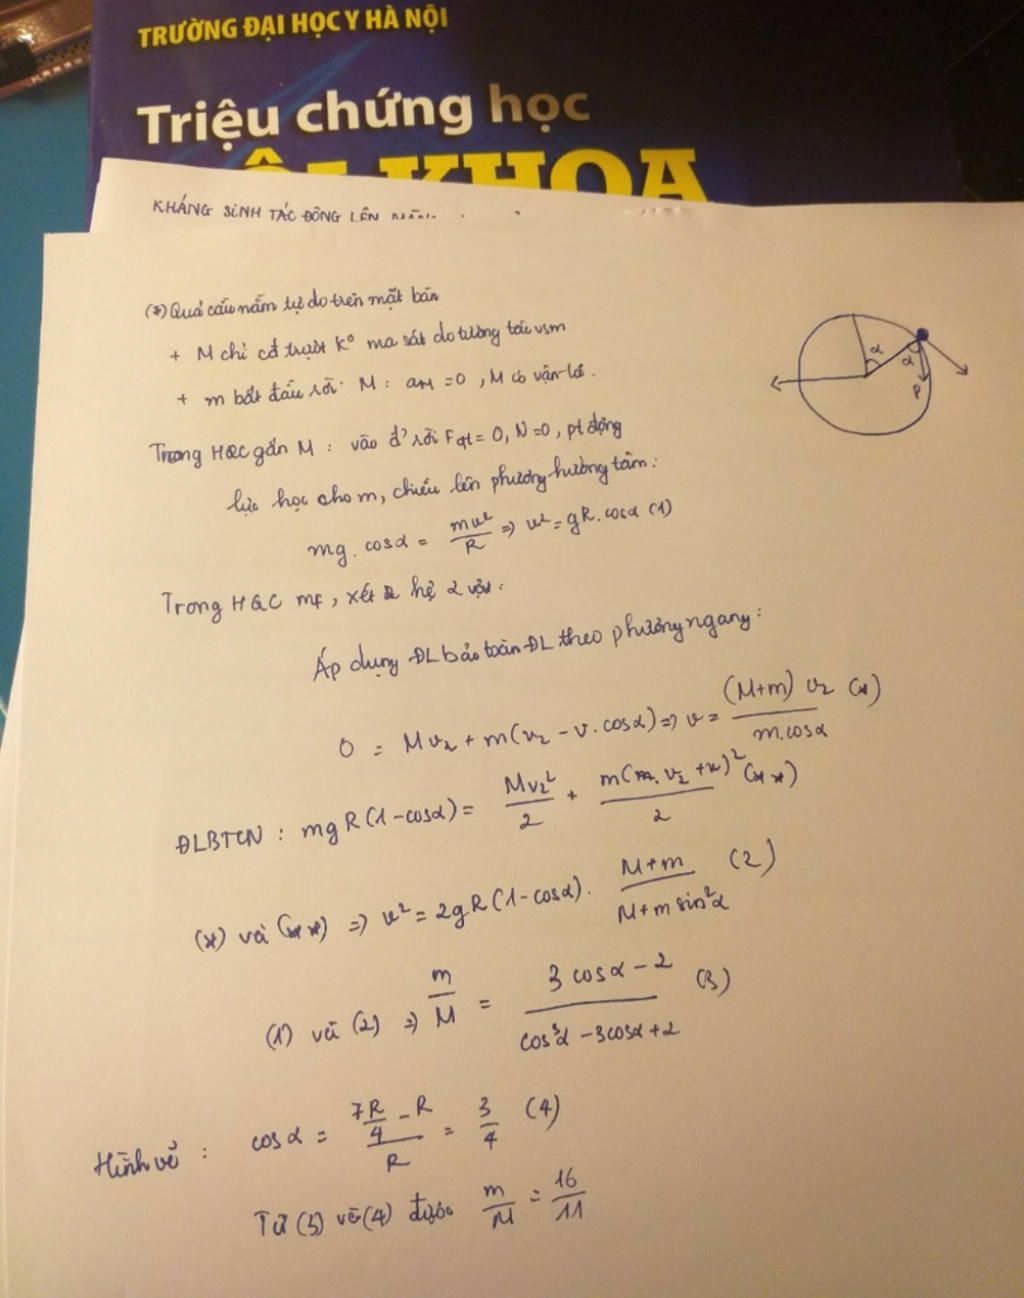 TRƯỜNG ĐẠI HỌC Y HÀ NỘI
Triệu chứng học
KHOA
KHÁNG SINH TÁC ĐỘNG LÊN
(*) Quả cầu nằm tự do trên mặt bàn
+ M chỉ cđ trượt k° ma sát do tương tác vs m
+ m bắt đầu rời M : aM = 0 , M có vận tốc .
Trong HQC gắn M : vào đ' rời Fqt = 0, N = 0, pt động
lực học cho m, chiếu lên phương hướng tâm :
mg . cosα = mv²/R => v² = gR. cosα (1)
Trong HQC mđ , xét hệ 2 vật :
Áp dụng ĐL bảo toàn ĐL theo phương ngang :
0 = Mv₂ + m(v₂ - v. cosα) => v = (M+m) v₂ / m.cosα (*)
ĐLBTCN : mgR(1-cosα) = Mv₂²/2 + m(v₂ + v)²/2 (**)
(*) và (**) => v² = 2gR(1-cosα). M+m / M+m sin²α (2)
(1) và (2) => m/M = 3 cosα - 2 / cos³α - 3cosα + 2 (3)
Hình vẽ : cosα = (7R/4 - R)/R = 3/4 (4)
Từ (3) và (4) được m/M = 16/11
α
α
P